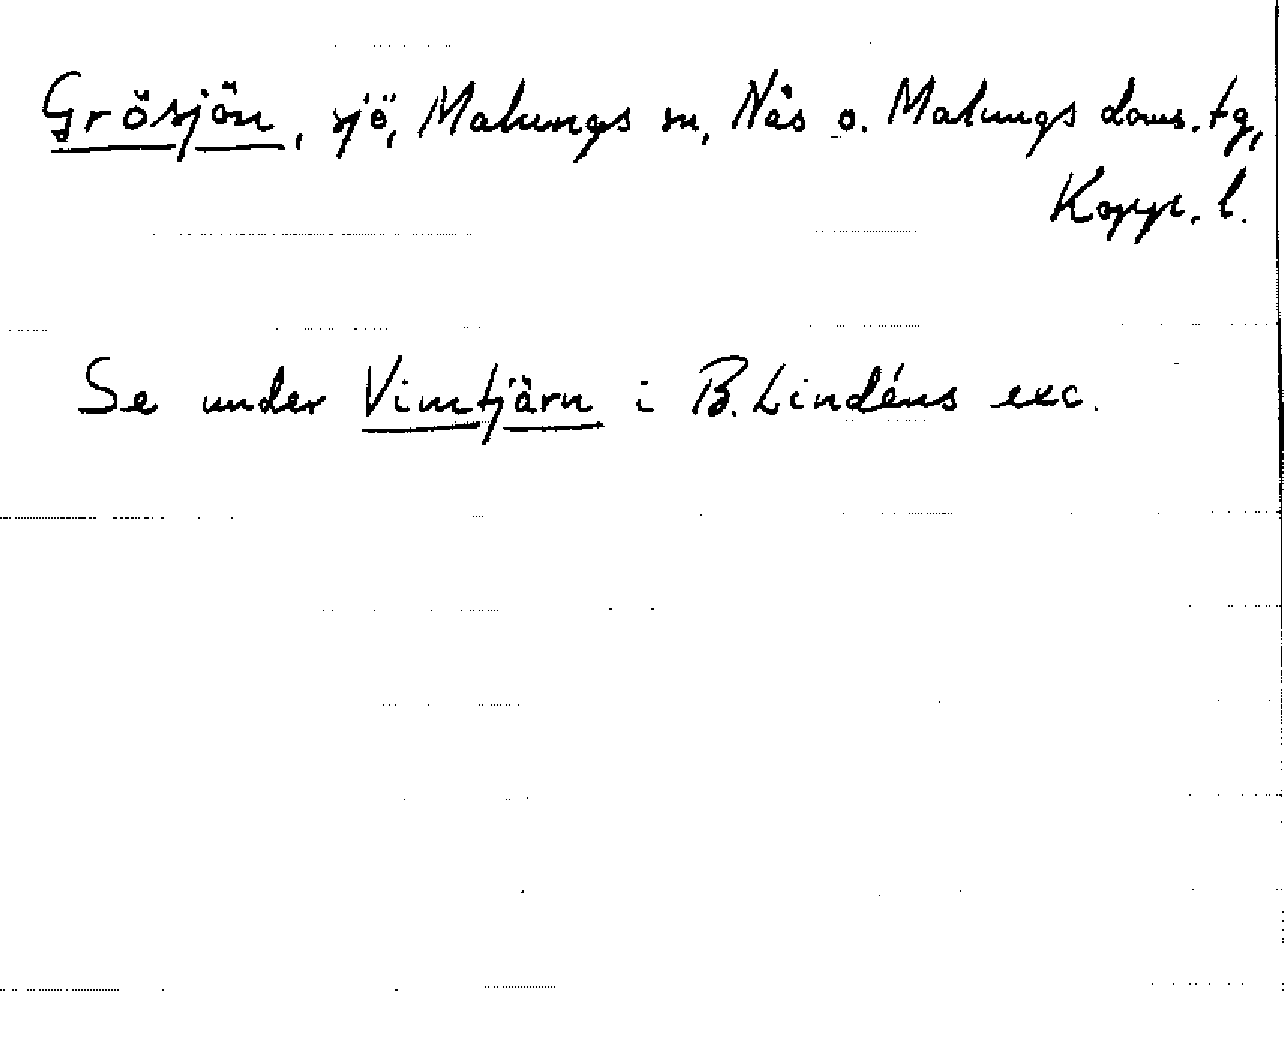 Grösjön, sjö, Malungs sn, Nås o. Malungs doms. tg,
Kopp. l.
Se under Vimtjärn i B. Lindéns exc.